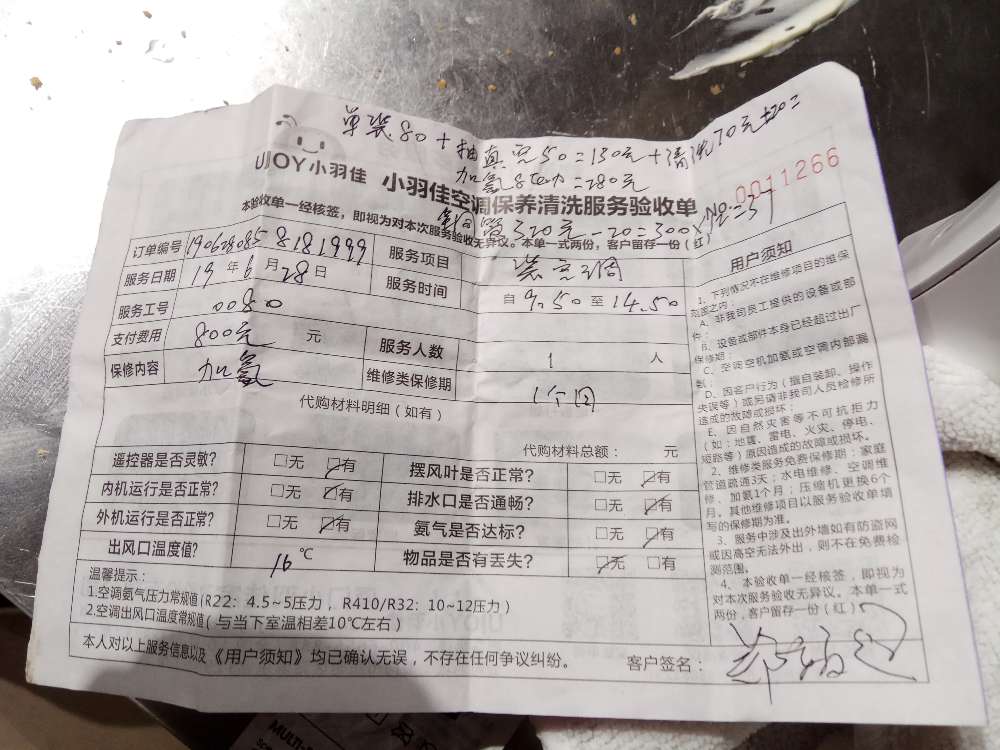 单装80+抽真空50=130元+清洗70元
UJOY 小羽佳
小羽佳空调保养清洗服务验收单
No. 0011266
本验收单一经核签，即视为对本次服务验收无异议。本单一式两份，客户留存一份（红）
订单编号 190628085 8181999 服务项目 装空调
服务日期 19 年 6 月 28 日 服务时间 自 9.50 至 14.50
服务工号 0080
支付费用 800元 元 服务人数 1 人
保修内容 加氨 维修类保修期 1个月
代购材料明细（如有）
代购材料总额： 元
遥控器是否灵敏? □无 □有 摆风叶是否正常? □无 □有
内机运行是否正常? □无 □有 排水口是否通畅? □无 □有
外机运行是否正常? □无 □有 氨气是否达标? □无 □有
出风口温度值? 16 ℃ 物品是否有丢失? □无 □有
温馨提示：
1.空调氨气压力常规值（R22：4.5~5压力，R410/R32：10~12压力）
2.空调出风口温度常规值（与当下室温相差10℃左右）
本人对以上服务信息以及《用户须知》均已确认无误，不存在任何争议纠纷。 客户签名：
用户须知
1、下列情况不在维修项目的维保
范围之内：
A、非我司员工提供的设备或部
件；
B、设备或部件本身已经超过出厂
保修期；
C、空调空机加氨或空调内部漏
氨；
D、因客户行为（擅自装卸、操作
失误等）或另请非我司人员检修所
造成的故障或损坏；
E、因自然灾害等不可抗拒力
（如：地震、雷电、火灾、停电、
短路等）原因造成的故障或损坏。
2、维修类服务免费保修期：家庭
管道疏通3天；水电维修、空调维
修、加氨1个月；压缩机更换6个
月。其他维修项目以服务验收单填
写的保修期为准。
3、服务中涉及出外墙如有防盗网
或因高空无法外出，则不在免费检
测范围。
4、本验收单一经核签，即视为
对本次服务验收无异议。本单一式
两份，客户留存一份（红）